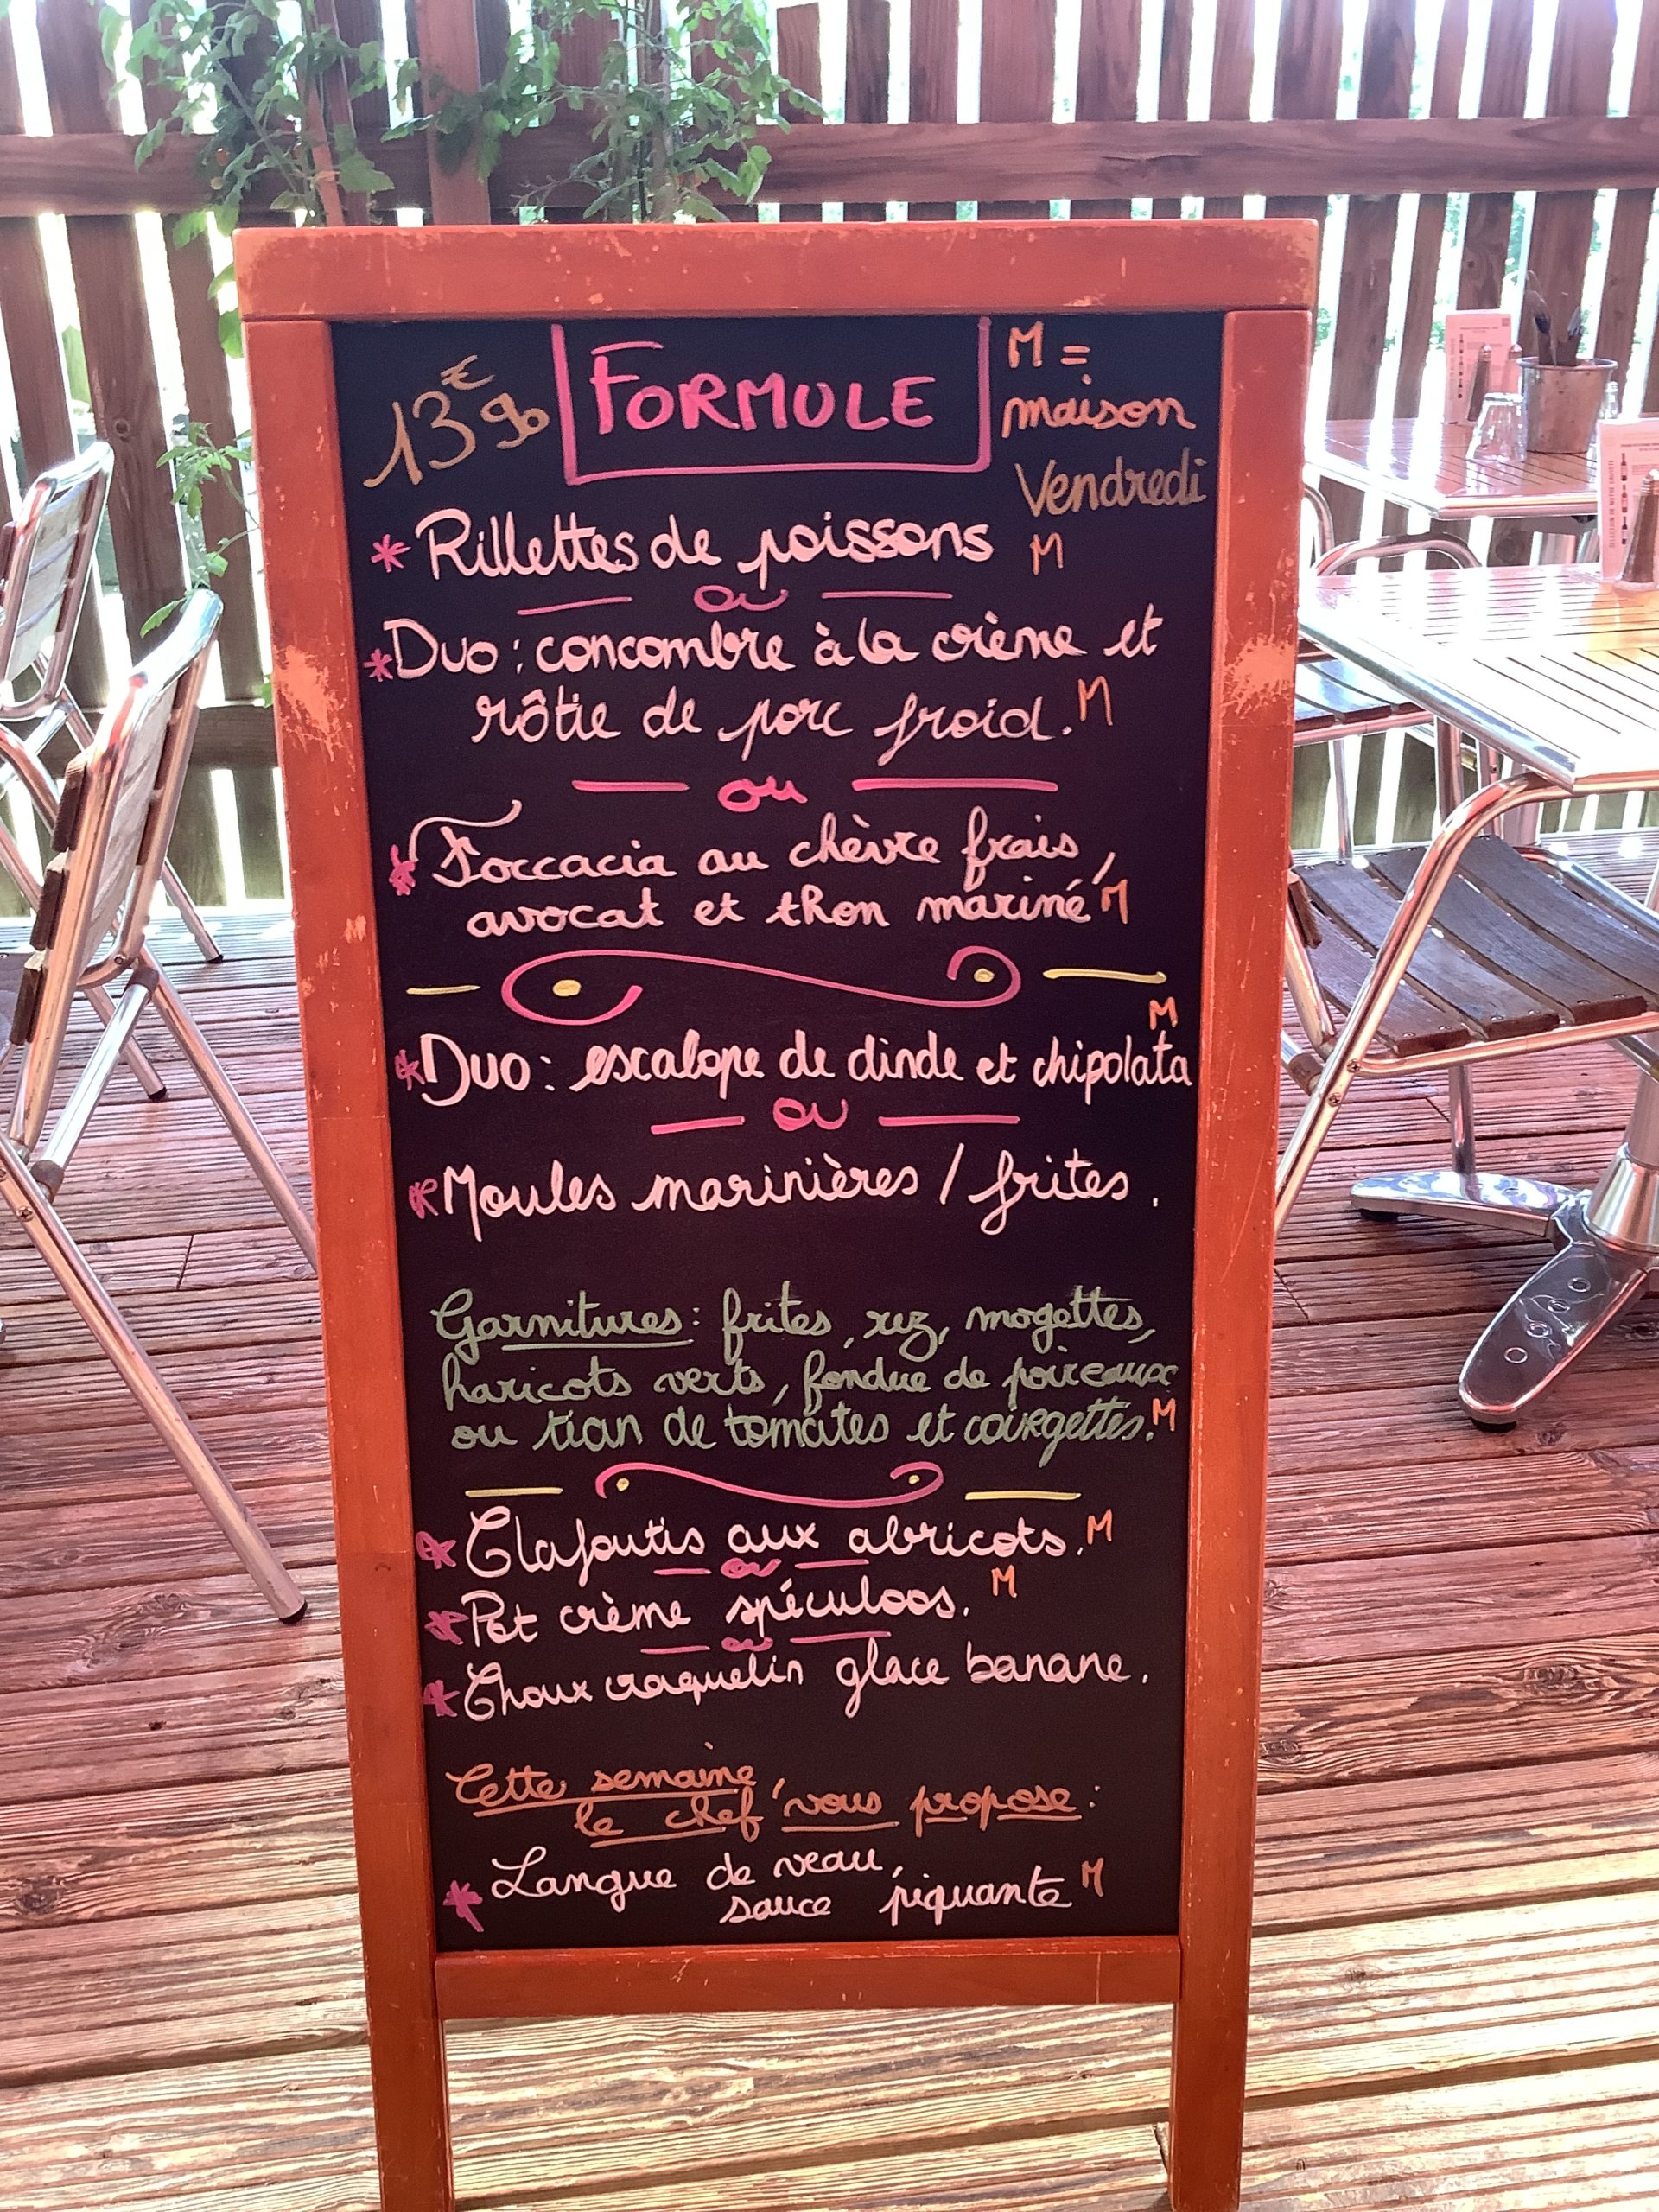 13€90 FORMULE M =
maison
Vendredi
* Rillettes de poissons M
ou
* Duo : concombre à la crème et
rôtie de porc froid. M
ou
* Foccacia au chèvre frais,
avocat et thon mariné M
M
* Duo : escalope de dinde et chipolata
ou
* Moules marinières / frites.
Garnitures : frites, riz, mogettes,
haricots verts, fondue de poireaux
ou tian de tomates et courgettes. M
* Clafoutis aux abricots. M
ou
* Pot crème spéculoos. M
ou
* Choux craquelin glace banane.
Cette semaine,
le chef vous propose :
* Langue de veau,
sauce piquante M